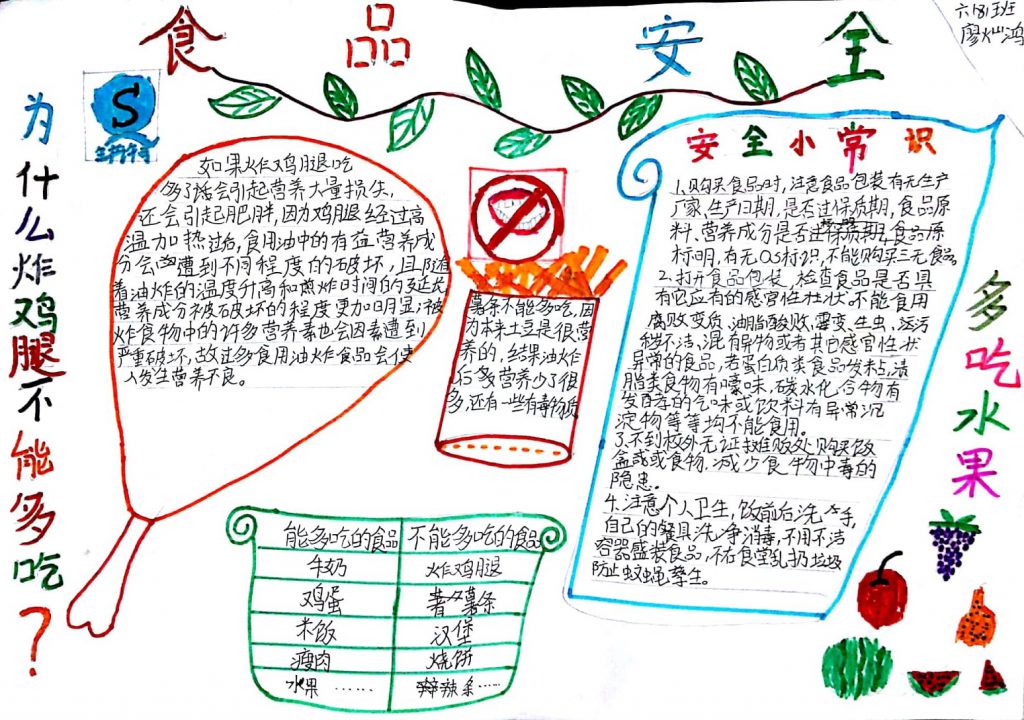 食品安全
六(8)班
廖灿鸿
为什么炸鸡腿不能多吃？
S
如果炸鸡腿吃
多了话会引起营养大量损失,
还会引起肥胖,因为鸡腿经过高
温加热过后,食用油中的有益营养成
分会遭到不同程度的破坏,且随
着油炸的温度升高和煎炸时间的延长
营养成分被破坏的程度更加明显;被
炸食物中的许多营养素也会因素遭到
严重破坏,故过多食用油炸食品会使
人发生营养不良。
薯条不能多吃,因
为本来土豆是很营
养的,结果油炸
后多营养少了很
多,还有一些有毒物质
安全小常识
1.购买食品时,注意食品包装有无生产
厂家,生产日期,是否过保质期,食品原
料、营养成分是否过保质期,食品原
材明,有无QS标识,不能购买三无食品。
2.打开食品包装,检查食品是否具
有它应有的感官性状。不能食用
腐败变质、油脂酸败,霉变、生虫,污
秽不洁,混有异物或者其它感官性状
异常的食品,若蛋白质类食品发粘,渍
脂类食物有嚎味,碳水化合物有
发酵的气味或饮料有异常沉
淀物等等均不能食用。
3.不到校外无证摊贩处购买饭
盒或食物,减少食物中毒的
隐患。
4.注意个人卫生,饭前后洗手,
自己的餐具洗净消毒,不用不洁
容器盛装食品,不在食堂乱扔垃圾
防止蚊蝇孳生。
多吃水果
能多吃的食品 不能多吃的食品
牛奶 炸鸡腿
鸡蛋 薯条
米饭 汉堡
瘦肉 烧饼
水果 …… 辣条……